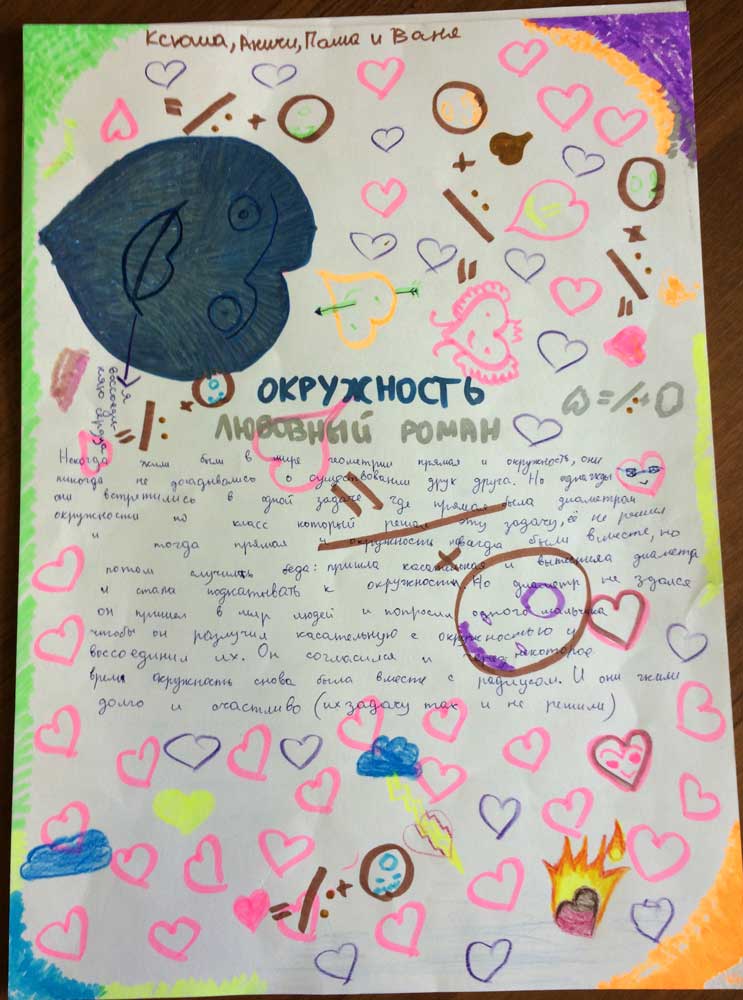 Ксюша, Аничи, Паша и Ваня
Я
воссоеди-
няю сердца
ОКРУЖНОСТЬ
ЛЮБОВНЫЙ РОМАН
Некогда жили были в мире геометрии прямая и окружность, они
никогда не догадывались о существовании друк друга. Но однажды
они встретились в одной задаче где прямая была диаметром
окружности но класс который решал эту задачу, её не решил
и тогда прямая и окружность навегда были вместе, но
потом случилась беда: пришла касательная и вытеснила диаметр
и стала подкатывать к окружности. Но диаметр не здался
он пришел в мир людей и попросил одного мальчика
чтобы он разлучил касательную с окружностью и
воссоединил их. Он согласился и через некоторое
время окружность снова была вместе с радиусом. И они жили
долго и счастливо (их задачу так и не решили)